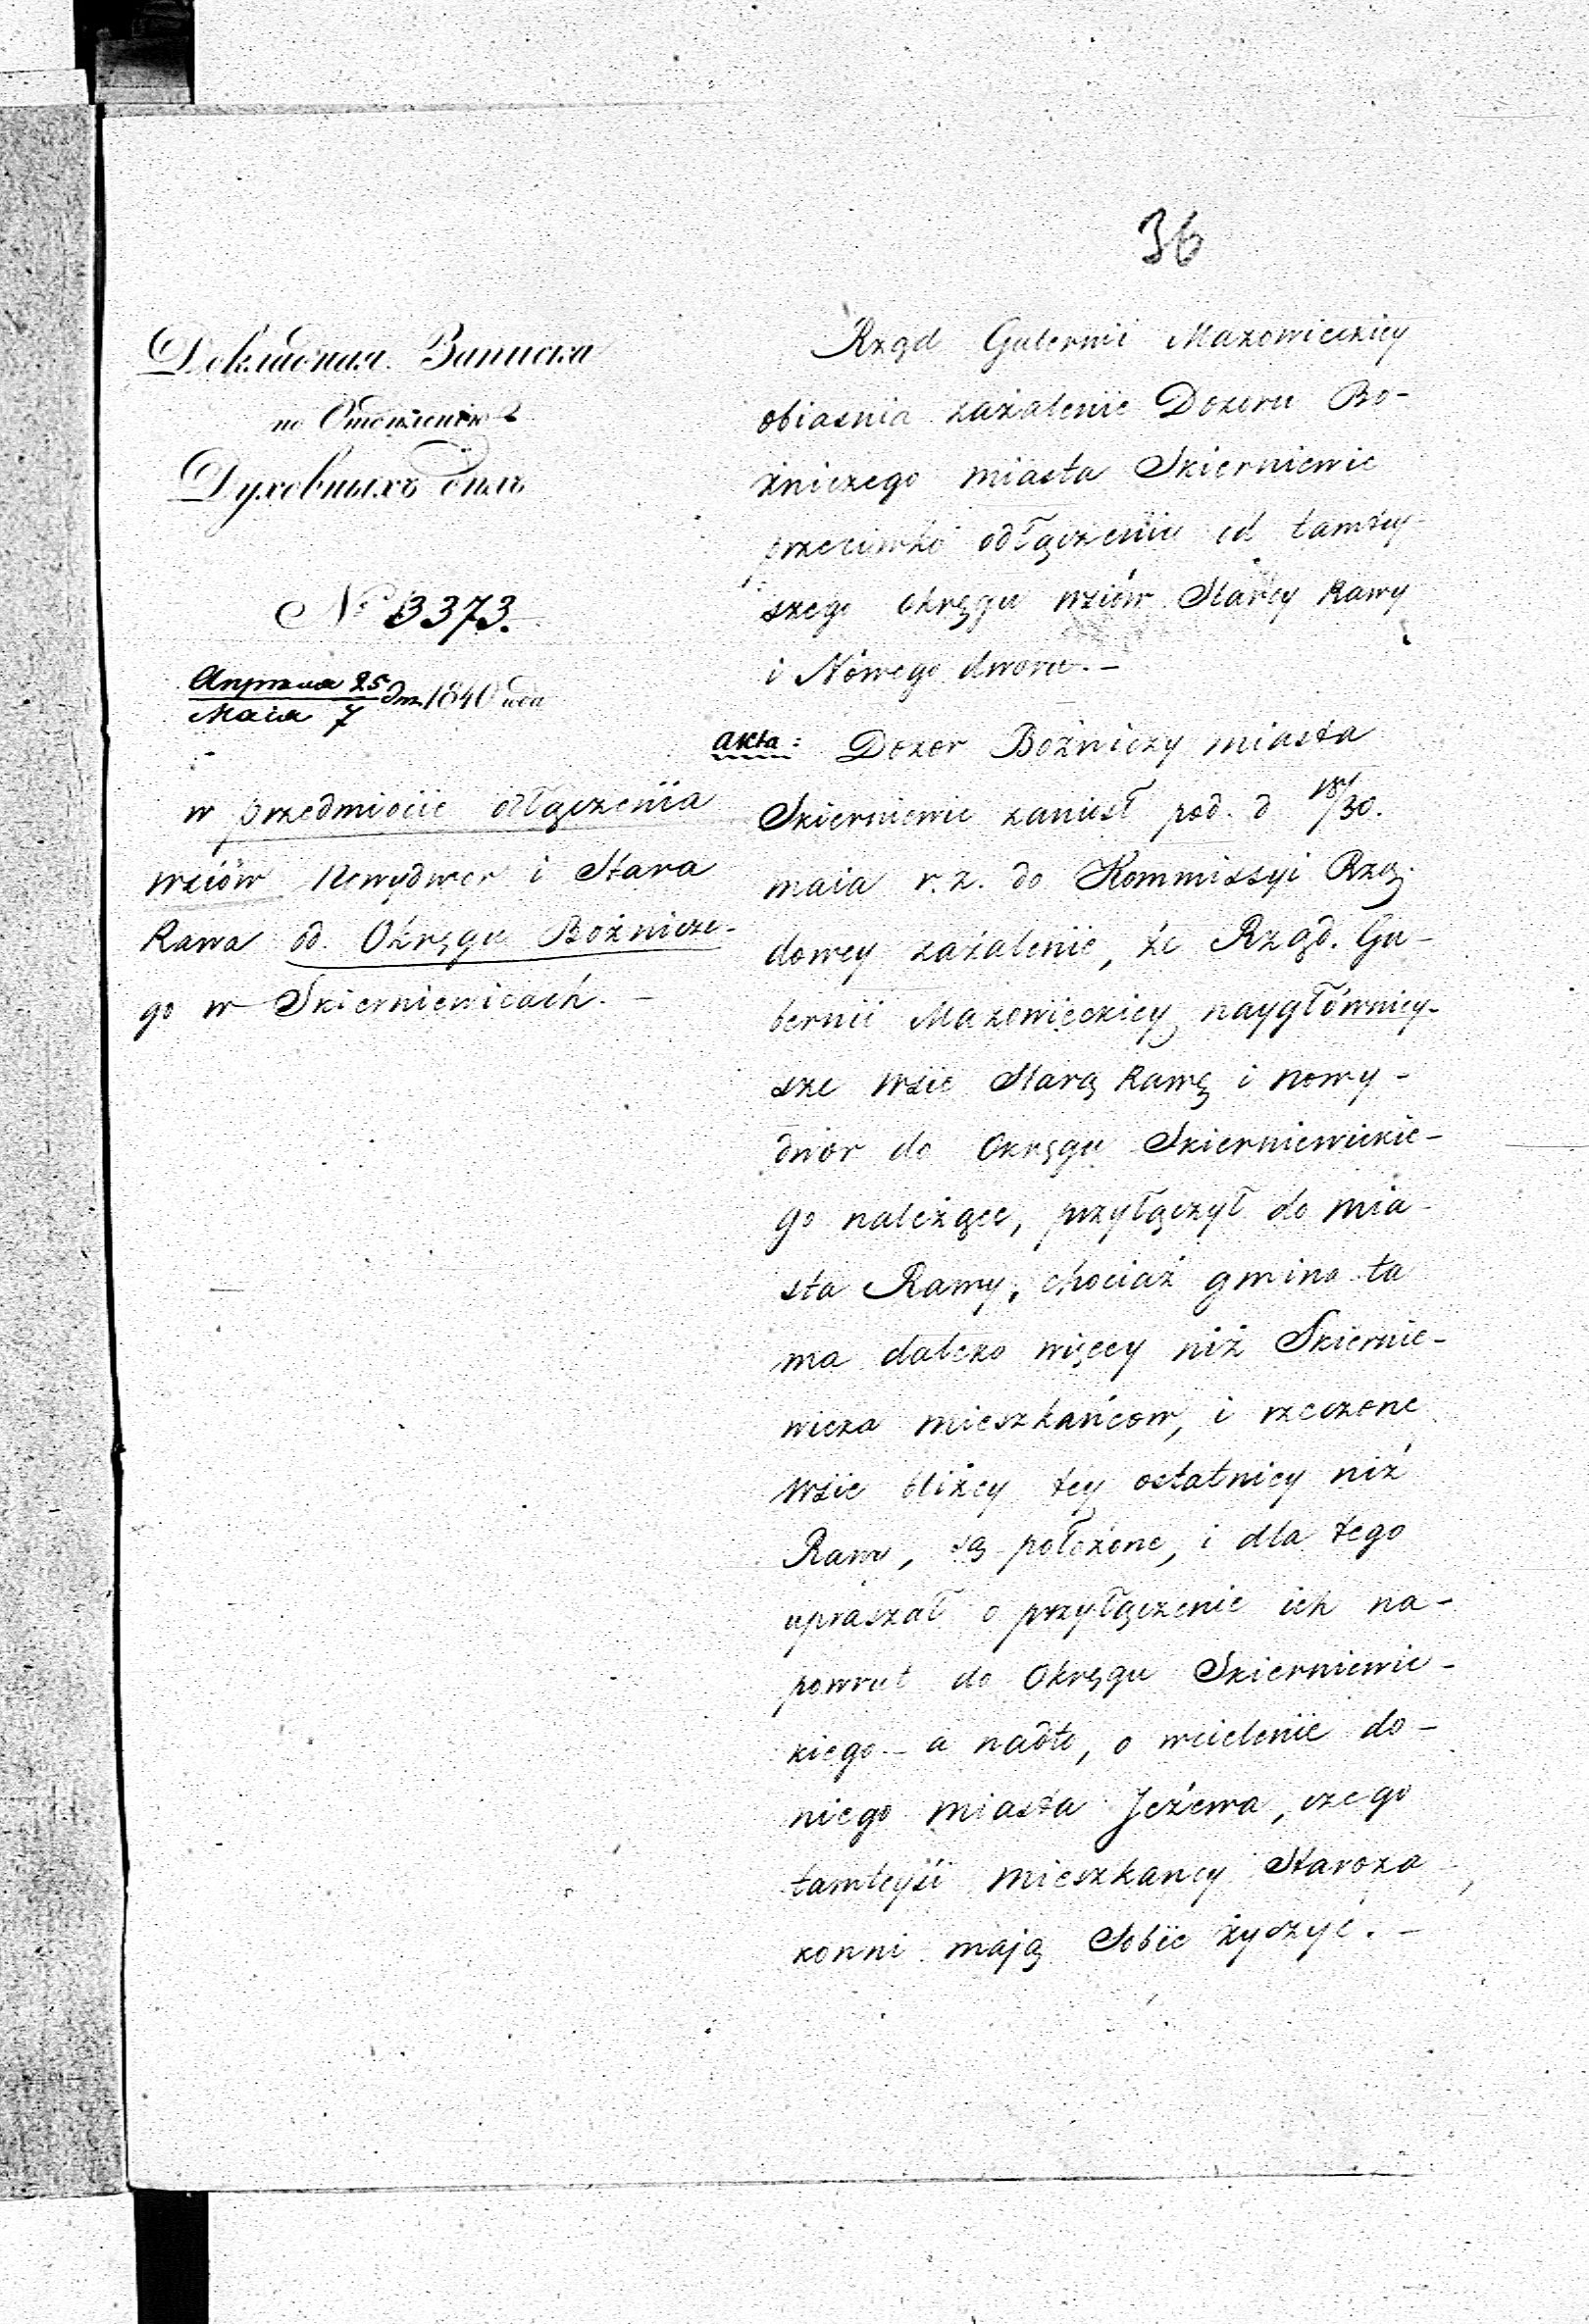 36
Докладная Записка
по Отдѣленію
Духовныхъ дѣлъ
№ 3373.
Апрѣля 25
Маія 7 дня 1840 года
w przedmiocie odłączenia
wsiów Nowydwor i Stara
Rawa od Okręgu Bożnicze-
go w Skierniewicach. –
Rząd Gubernii Mazowieckiey
obiasnia zażalenie Dozoru Bo-
żniczego miasta Skierniewic
przeciwko odłączeniu od tamtey-
szego Okręgu wsiów Starey Rawy
i Nowego dworu. –
Akta: Dozor Bożniczy miasta
Skierniewic zaniosł pod d 18/30.
maia r. z. do Kommissyi Rzą-
dowey zażalenie, że Rząd Gu-
bernii Mazowieckiey naygłówniey-
sze wsie Starą Rawę i nowy-
dwór do Okręgu Skierniewickie-
go należące, przyłączył do mia-
sta Rawy, chociaż gmina ta
ma daleko więcey niż Skiernie-
wicka mieszkańcow, i rzeczone
wsie bliżey tey ostatniey niż
Rawy, są położone, i dla tego
upraszał o przyłączenie ich na-
powrut do Okręgu Skierniewic-
kiego – a nadto, o wcielenie do-
niego miasta Jeżewa, czego
tamteyśi mieszkancy Staroza-
konni mają Sobie życzyć. –